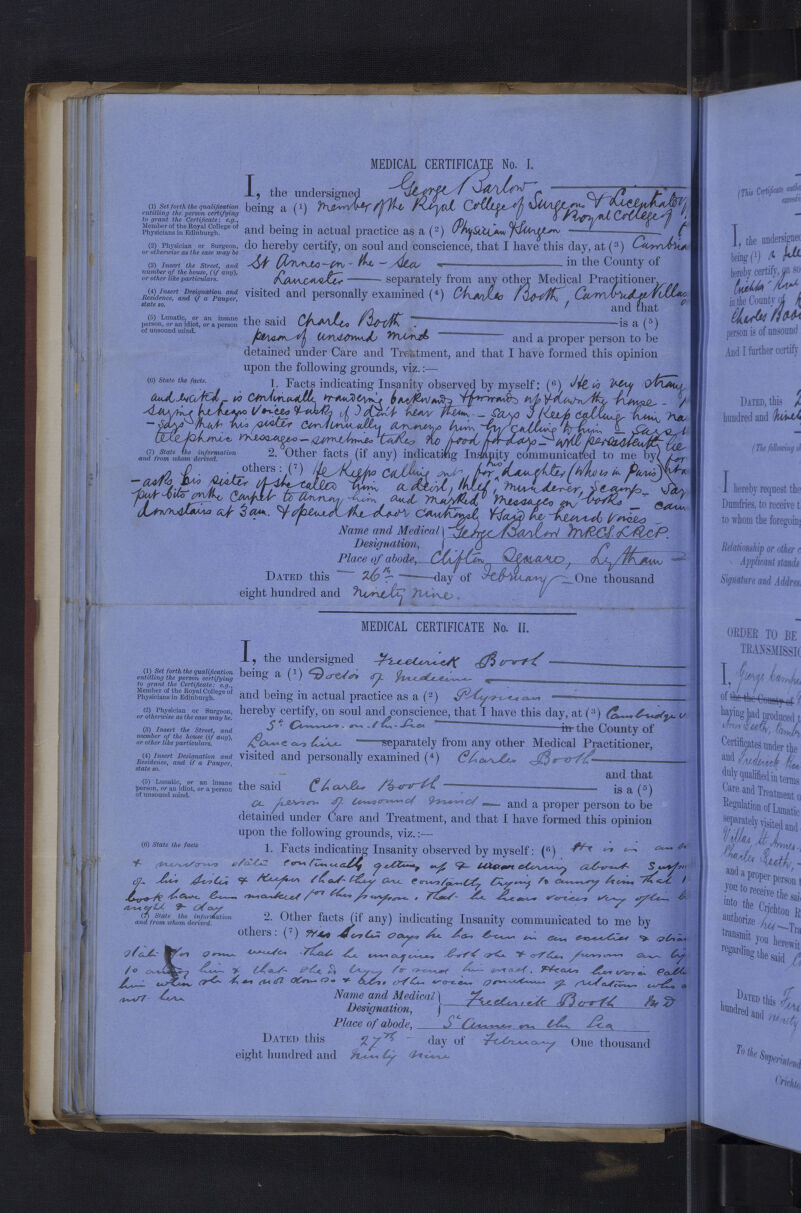 MEDICAL CERTIFICATE No. I.
I, the undersigned George Barlow
(1) Set forth the qualification entitling the person certifying to grant the Certificate; e.g., Member of the Royal College of Physicians in Edinburgh.
being a (1) Member of the Royal College of Surgeons & Licentiate of Royal College of
(2) Physician or Surgeon, or otherwise as the case may be
and being in actual practice as a (2) Physician & Surgeon
do hereby certify, on soul and conscience, that I have this day, at (3) Cambria
(3) Insert the Street, and number of the house, (if any), or other like particulars.
St Annes-on-the-Sea in the County of
Lancaster separately from any other Medical Practitioner,
(4) Insert Designation and Residence, and if a Pauper, state so.
visited and personally examined (4) Charles Booth, Cambridge Villas
and that
(5) Lunatic, or an insane person, or an idiot, or a person of unsound mind.
the said Charles Booth is a (5)
person of unsound mind and a proper person to be
detained under Care and Treatment, and that I have formed this opinion
upon the following grounds, viz.:—
(6) State the facts.
1. Facts indicating Insanity observed by myself: (6) He is very strange
and excited - is continually wandering backwards & forwards up & down the house -
saying he hears voices & asks if I don't hear them - says I keep calling him
- says that his sister continually annoys him by calling to him - says
telephonic messages - sometimes takes no food for days - will persistently
(7) State the information and from whom derived.
2. Other facts (if any) indicating Insanity communicated to me by
others: (7) He keeps calling out for his daughter (who is in Paris)
- asks his sister if she called him a devil, thief, murderer, scamp - Say
put bits on the carpet to annoy him and marked messages on books - cam
downstairs at 3 am. & opened the door cautiously & said he heard voices -
Name and Medical Designation, George Barlow MRCS. LRCP.
Place of abode, Clifton Square, Lytham
DATED this 26th day of February One thousand
eight hundred and ninety nine.
MEDICAL CERTIFICATE No. II.
I, the undersigned Frederick Booth
(1) Set forth the qualification entitling the person certifying to grant the Certificate: e.g., Member of the Royal College of Physicians in Edinburgh.
being a (1) Doctor of Medicine
and being in actual practice as a (2) Physician
(2) Physician or Surgeon, or otherwise as the case may be.
hereby certify, on soul and conscience, that I have this day, at (3) Cambridge V
(3) Insert the Street, and number of the house (if any), or other like particulars.
St Annes. on. the. Sea in the County of
Lancashire separately from any other Medical Practitioner,
(4) Insert Designation and Residence, and if a Pauper, state so.
visited and personally examined (4) Charles Booth
and that
(5) Lunatic, or an insane person, or an idiot, or a person of unsound mind.
the said Charles Booth is a (5)
a person of unsound mind and a proper person to be
detained under Care and Treatment, and that I have formed this opinion
upon the following grounds, viz.:—
(6) State the facts
1. Facts indicating Insanity observed by myself: (6) He is in an
& nervous state continually getting up & wandering about
of his Sister & Keeper that they are constantly trying to annoy him that
book have been marked for this purpose. That he hears voices very often
night & day
(7) State the information and from whom derived.
2. Other facts (if any) indicating Insanity communicated to me by
others: (7) His Sister says he has been in an excited &
state for some weeks that he imagines both she & other persons are
to annoy him & that she is trying to send him mad. Hears her voice
him when she has not done so & also other voices sometimes of relations who
not here
Name and Medical Designation, Frederick Booth M D
Place of abode, St Annes on the Sea
DATED this 27th day of February One thousand
eight hundred and ninety nine
(This Certificate
I, the undersigned
being (1) a
hereby certify, on so
in the County
Charles Boo
person is of unsound
And I further certify
DATED, this
hundred and nine
(The following
I hereby request the
Dumfries, to receive t
to whom the foregoing
Relationship or other c
Applicant stands
Signature and Addres
ORDER TO BE
TRANSMISSI
I, George
of the County of
having had produced
Certificates under the
and Frederick
duly qualified in terms
Care and Treatment o
Regulation of Lunatic
separately visited and
Villas, St Annes-
Charles Booth,
and a proper person t
you to receive the said
into the Crichton R
authorize
transmit you herewit
regarding the said
DATED this
hundred and ninety
To the Superintend
Crichto